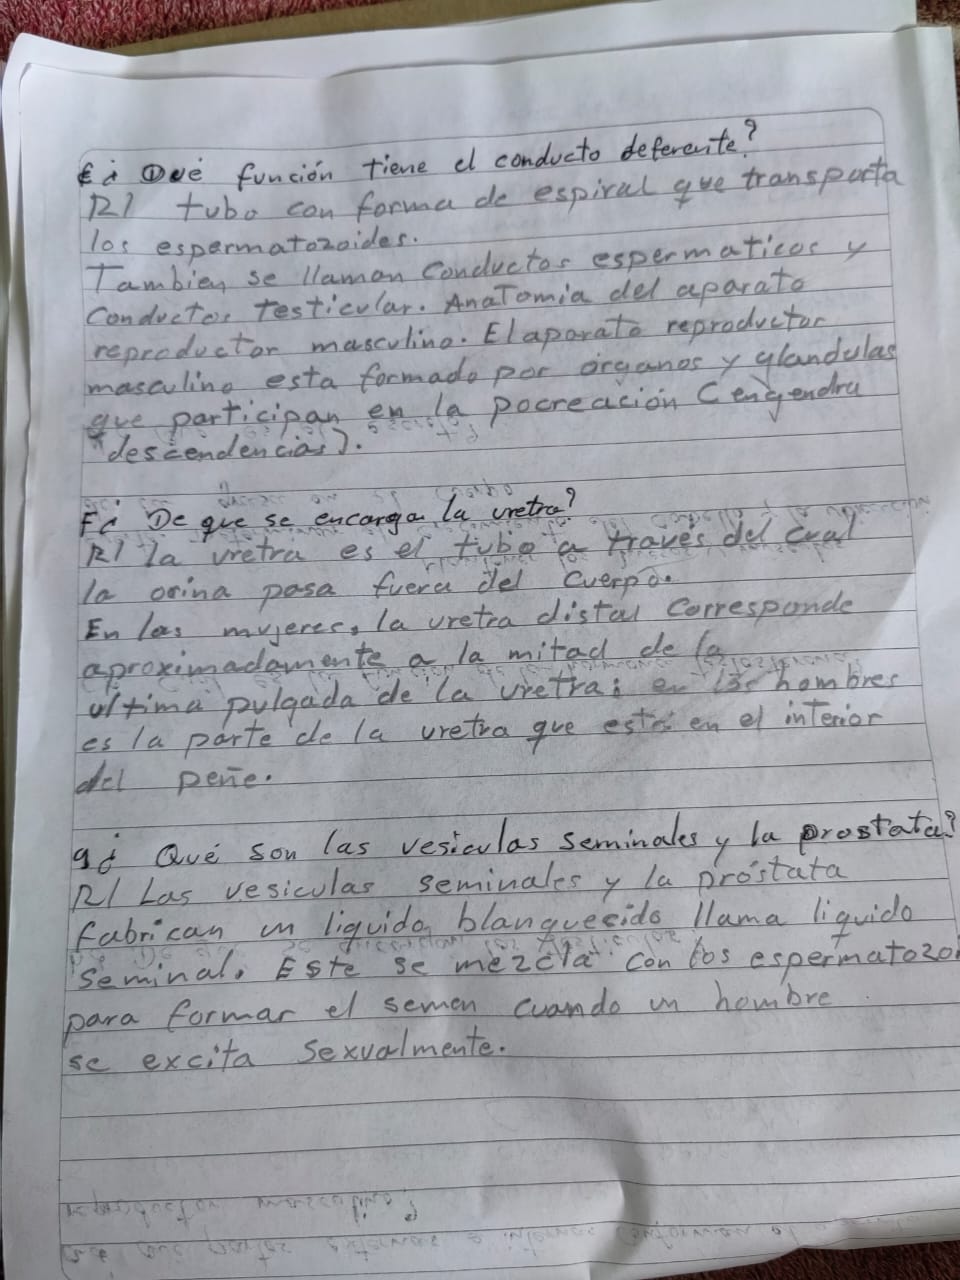 E ¿ Qué función tiene el conducto deferente?
R/ tubo con forma de espiral que transporta
los espermatozoides.
Tambien se llaman conductos espermaticos y
conductos testicular. Anatomia del aparato
reproductor masculino. El aparato reproductor
masculino esta formado por órganos y glandulas
que participan en la pocreación (engendra
descendencias).
F ¿ De que se encarga la uretra?
R/ la uretra es el tubo a traves del cual
la orina pasa fuera del cuerpo.
En las mujeres, la uretra distal corresponde
aproximadamente a la mitad de la
ultima pulgada de la uretra; en los hombres
es la parte de la uretra que está en el interior
del pene.
g ¿ Qué son las vesiculas seminales y la prostata?
R/ Las vesiculas seminales y la próstata
fabrican un liquido blanquecido llama liquido
seminal. Este se mezcla con los espermatozoi
para formar el semen cuando un hombre
se excita sexualmente.